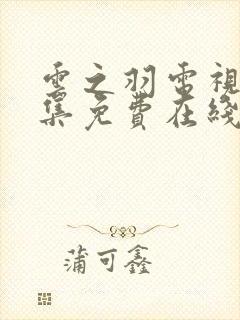 雲之羽電視
集免費在綫
蒲可鑫